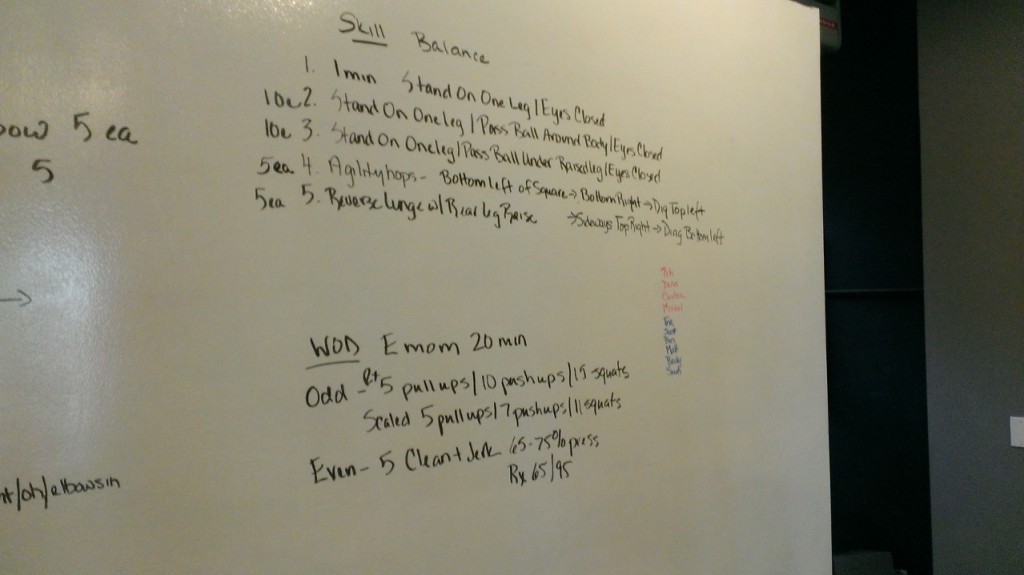 Skill Balance
1. 1min Stand On One Leg / Eyes Closed
10e 2. Stand On One leg / Pass Ball Around Body / Eyes Closed
10e 3. Stand On One leg / Pass Ball Under Raised leg / Eyes Closed
5ea 4. Agility hops - Bottom left of Square → Bottom Right → Diag Top left
→ Sideways Top Right → Diag Bottom left
5ea 5. Reverse lunge w/ Rear leg Raise
5 ea
5
→
WOD Emom 20 min
Odd - 5 pull ups / 10 pushups / 15 squats
Scaled 5 pull ups / 7 pushups / 11 squats
Even - 5 Clean + Jerk 65-75% press
Rx 65/95
/oh/elbows in